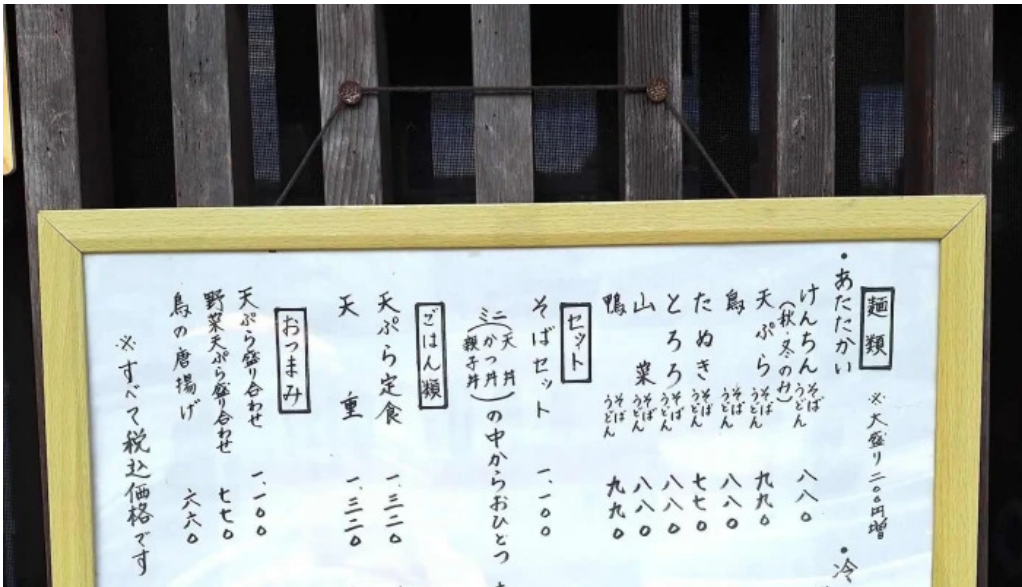 麺類 ※大盛り二〇〇円増
・あたたかい
・冷
けんちん そば うどん 八八〇
(秋・冬のみ)
天ぷら そば うどん 九九〇
鳥 そば うどん 八八〇
たぬき そば うどん 七七〇
とろろ そば うどん 八八〇
山菜 そば うどん 八八〇
鴨 そば うどん 九九〇
セット
そばセット 一、一〇〇
ミニ(天丼 かつ丼 親子丼)の中からおひとつ
ごはん類
天ぷら定食 一、三二〇
天重 一、三二〇
おつまみ
天ぷら盛り合わせ 一、一〇〇
野菜天ぷら盛り合わせ 七七〇
鳥の唐揚げ 六六〇
※すべて税込価格です